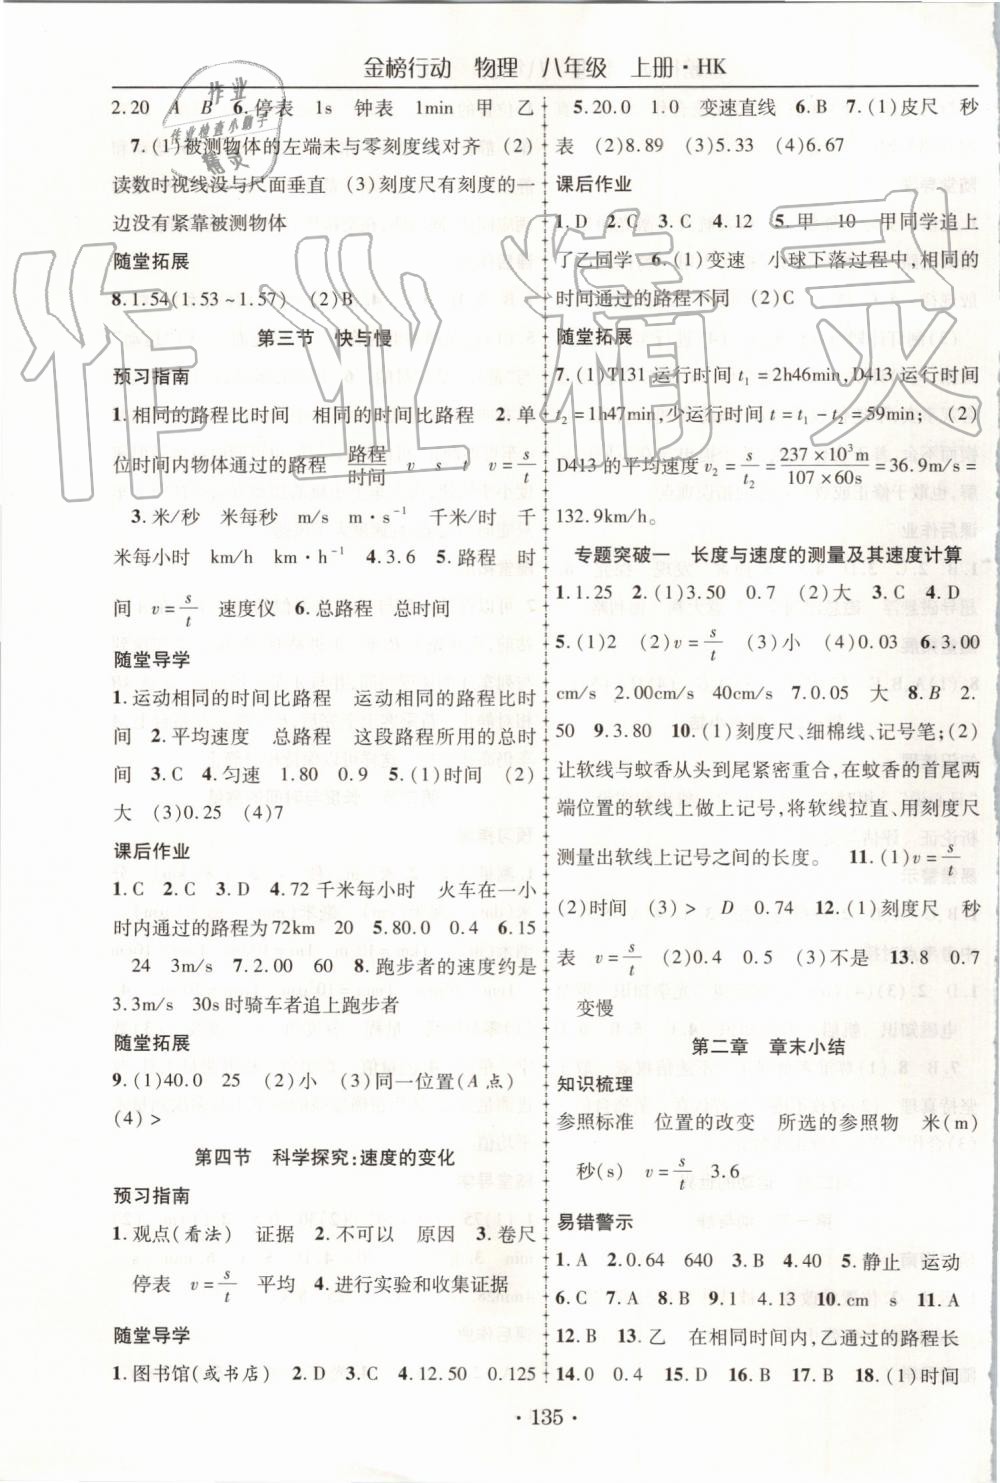 金榜行动　物理　八年级　上册·HK
2.20　A　B　6.停表　1s　钟表　1min　甲　乙
7.(1)被测物体的左端未与零刻度线对齐　(2)
读数时视线没与尺面垂直　(3)刻度尺有刻度的一
边没有紧靠被测物体
随堂拓展
8.1.54(1.53~1.57)　(2)B
第三节　快与慢
预习指南
1.相同的路程比时间　相同的时间比路程　2.单
位时间内物体通过的路程　路程/时间　v　s　t　v=s/t
3.米/秒　米每秒　m/s　m·s⁻¹　千米/时　千
米每小时　km/h　km·h⁻¹　4.3.6　5.路程　时
间　v=s/t　速度仪　6.总路程　总时间
随堂导学
1.运动相同的时间比路程　运动相同的路程比时
间　2.平均速度　总路程　这段路程所用的总时
间　3.C　4.匀速　1.80　0.9　5.(1)时间　(2)
大　(3)0.25　(4)7
课后作业
1.C　2.C　3.D　4.72 千米每小时　火车在一小
时内通过的路程为72km　20　5.80.0　0.4　6.15
24　3m/s　7.2.00　60　8.跑步者的速度约是
3.3m/s　30s时骑车者追上跑步者
随堂拓展
9.(1)40.0　25　(2)小　(3)同一位置(A点)
(4)>
第四节　科学探究:速度的变化
预习指南
1.观点(看法)　证据　2.不可以　原因　3.卷尺
停表　v=s/t　平均　4.进行实验和收集证据
随堂导学
1.图书馆(或书店)　2.D　3.C　4.12.50　0.125
5.20.0　1.0　变速直线　6.B　7.(1)皮尺　秒
表　(2)8.89　(3)5.33　(4)6.67
课后作业
1.D　2.C　3.C　4.12　5.甲　10　甲同学追上
了乙同学　6.(1)变速　小球下落过程中,相同的
时间通过的路程不同　(2)C
随堂拓展
7.(1)T131运行时间t₁=2h46min,D413运行时间
t₂=1h47min,少运行时间t=t₁-t₂=59min;　(2)
D413的平均速度v₂=s/t₂=237×10³m/107×60s=36.9m/s=
132.9km/h。
专题突破一　长度与速度的测量及其速度计算
1.1.25　2.(1)3.50　0.7　(2)大　3.C　4.D
5.(1)2　(2)v=s/t　(3)小　(4)0.03　6.3.00
cm/s　2.00cm/s　40cm/s　7.0.05　大　8.B　2.
50　9.3.80　10.(1)刻度尺、细棉线、记号笔;(2)
让软线与蚊香从头到尾紧密重合,在蚊香的首尾两
端位置的软线上做上记号,将软线拉直、用刻度尺
测量出软线上记号之间的长度。　11.(1)v=s/t
(2)时间　(3)>　D　0.74　12.(1)刻度尺　秒
表　v=s/t　(2)0.4　0.5　(3)不是　13.8　0.7
变慢
第二章　章末小结
知识梳理
参照标准　位置的改变　所选的参照物　米(m)
秒(s)　v=s/t　3.6
易错警示
1.A　2.0.64　640　3.B　4.40　5.静止　运动
6.C　7.A　8.B　9.1　4.13　10.cm　s　11.A
12.B　13.乙　在相同时间内,乙通过的路程长
14.0　0.4　15.D　16.D　17.B　18.(1)时间
·135·
作业精灵
作业
作业检查小帮手
精灵